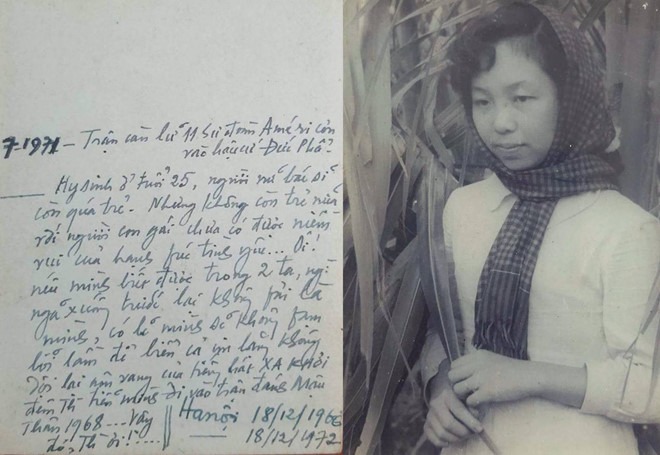 7-1971 - Trận càn lữ 11 Sư đoàn Améri con
vào hậu cứ Đức Phổ.
Hy sinh ở tuổi 25, người nữ bác sĩ
còn quá trẻ. Nhưng không còn trẻ nữa
với người con gái chưa có được niềm
vui của hạnh fúc tình yêu... Ôi!
nếu mình biết được trong 2 ta, ng
ngã xuống trước lại không fải là
mình, có lẽ mình sẽ không
lầm để biển cả im lặng không
đổi lại âm vang của tiếng hát XA KHƠI
đêm Th tiễn mình đi vào trận đánh Mậu
Thân 1968 ... Vậy
đó, Th ơi! ....
Hanội 18/12/1966
18/12/1972